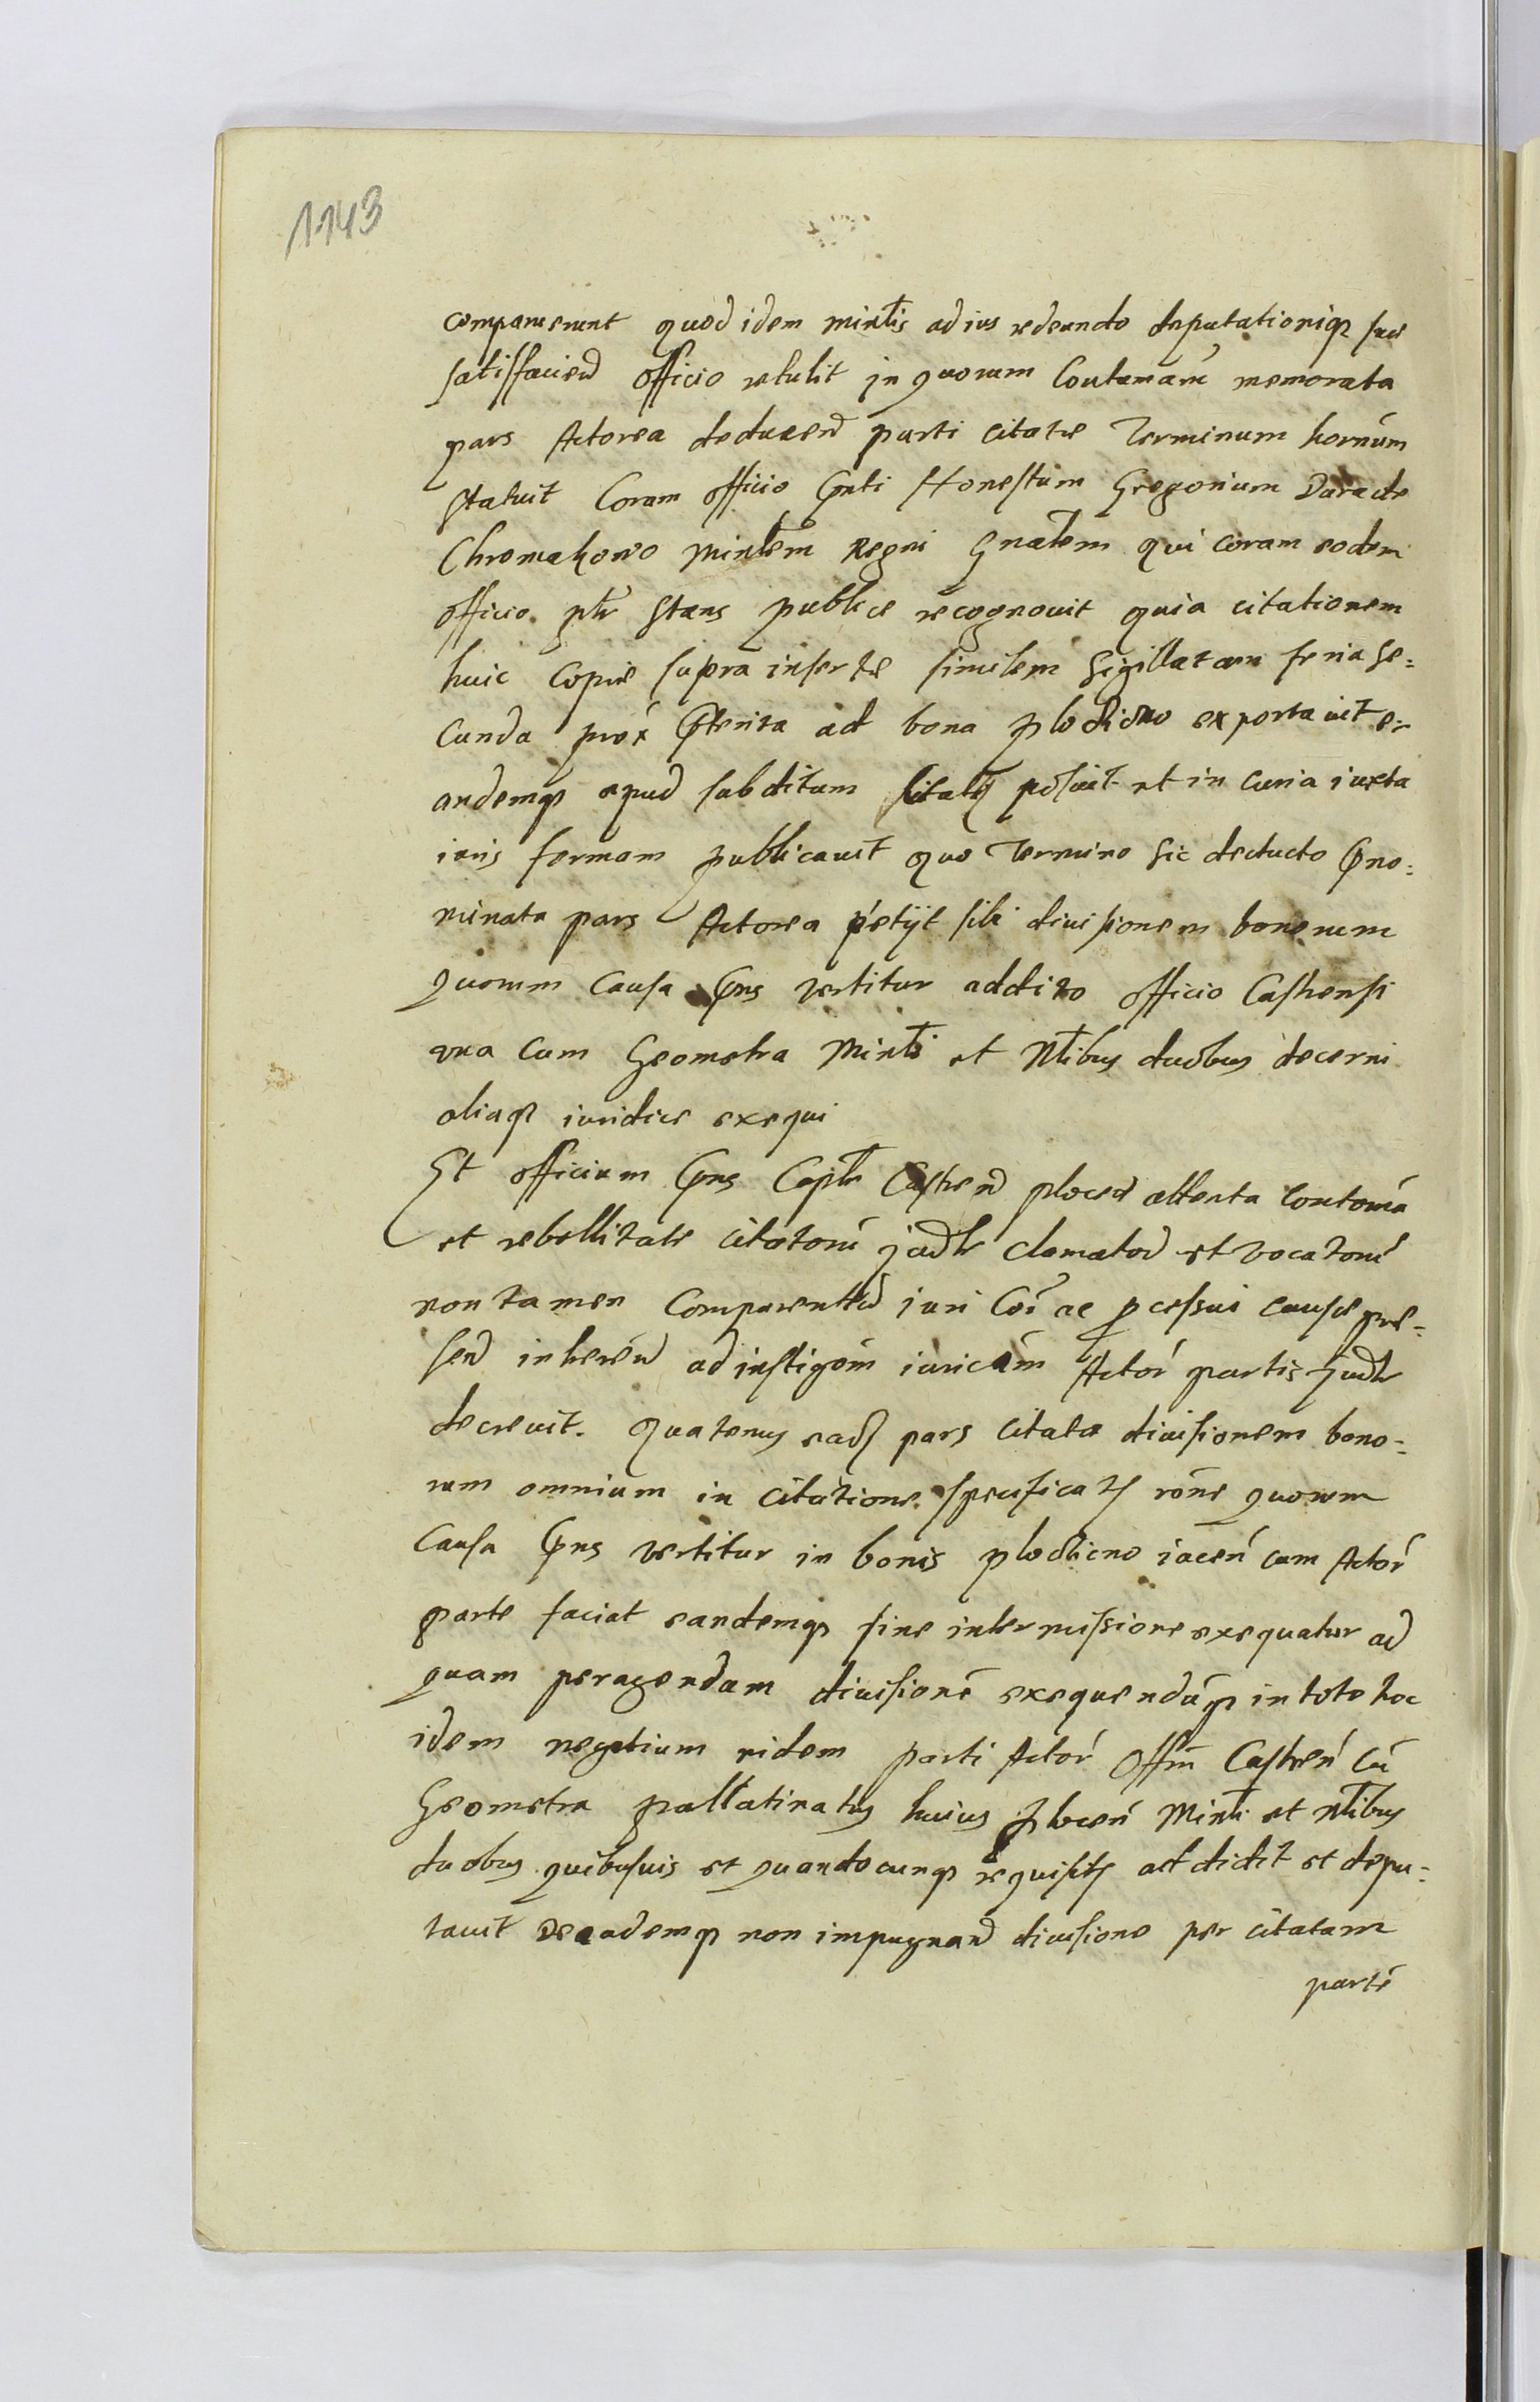 1143
comparuerunt quod idem minlis ad ius redeundo deputationiq suae
satisfaciend officio retulit in quorum Contumam memorata
pars Actorea deducend parti citatae Terminum hornum
statuit Coram officio Pnti Honestum Gregorium Dara de
Chromakowo Minlem Regni Gnalem qui coram eodem
officio plr stans publice recognouit quia citationem
huic copiae supra insertae similem sigillatam feria se=
cunda prox Pterita ad bona exportauit e=
andemq apud subditum posuit et in curia iuxta
iuris formam publicauit quo Termino sic deducto Pno=
minata pars Actorea petijt sibi diuisionem bonorum
quorum causa Pns vertitur addito officio Castrensi
vna cum Geometra Minli et Nlibus duobus decerni
aliaq iuridice exequi
Et officium Pns Caple Castren plocen attenta contoma
et rebellitate citatoru judle clamator et vocatoru
non tamen Comparentiu iuri Coi ac pcessui causae pre=
sen inheren ad instigom iuricam Actor partis judle
decreuit. Quatenus ead pars citata diuisionem bono=
rum omnium in citatione specificat rone quorum
causa Pns vertitur in bonis iacen cum Actor
parte faciat eandemq sine intermissione exequatur ad
quam peragendam diuisione exequendaq in toto hoc
idem negotium eidem parti Actor Offm Castren cu
Geometra pallatinatus huius plocen Minli et Nlibus
duobus quibusuis et quandocunq requisit addidit et depu=
tauit eademq non impugnand diuisione per citatam
parte